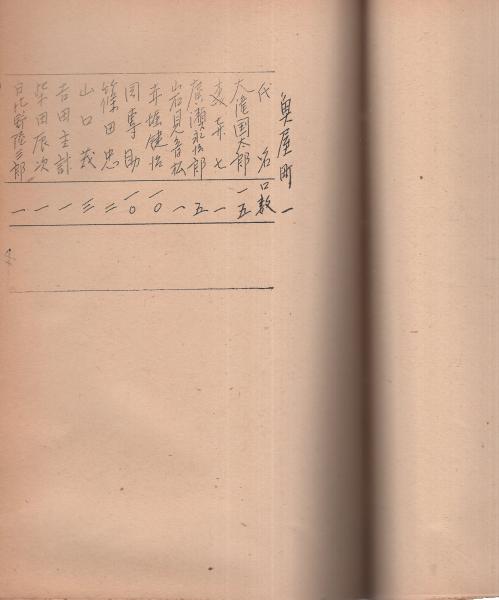 魚屋町 一
代 名 口数
大洼国太郎 一五
奉七 一
廣瀬永治郎 五
岩見音松 一
赤堀健治 一〇
岡専助 一〇
篠田忠 二
山口茂 三
吉田主計 一
柴田辰次 一
日比野陸三郎 一